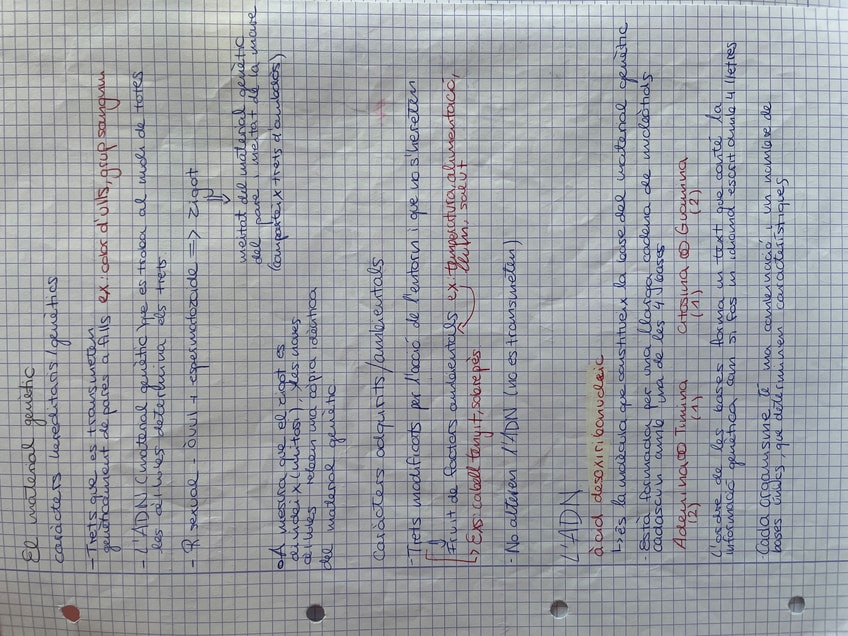 El material genètic
caràcters hereditaris/genètics
- Trets que es transmeten
genèticament de pares a fills ex: color d'ulls, grup sanguini
- L'ADN (material genètic) que es troba al nucli de totes
les cèl·lules determina els trets
- R. sexual - Òvul + espermatozoide => zigot
meitat del material genètic
del pare i meitat de la mare
(comparteix trets d'ambdós)
A mesura que el zigot es
divideix x (mitosi), les noves
cèl·lules reben una còpia idèntica
del material genètic
Caràcters adquirits/ambientals
- Trets modificats per l'acció de l'entorn i que no s'hereten
Fruit de factors ambientals ex: temperatura, alimentació,
llum, salut
↳ Exs: cabell tenyit, sobrepès
- No alteren l'ADN (no es transmeten)
L'ADN
àcid desoxiribonucleic
↳ és la molècula que constitueix la base del material genètic
- Està formada per una llarga cadena de nucleòtids
cadascun amb una de les 4 bases
Adenina Timina Citosina Guanina
(2) (1) (1) (2)
L'ordre de les bases forma un text que conté la
informació genètica com si fos un idioma escrit amb 4 lletres
- Cada organisme té una combinació i un nombre de
bases únics, que determinen característiques